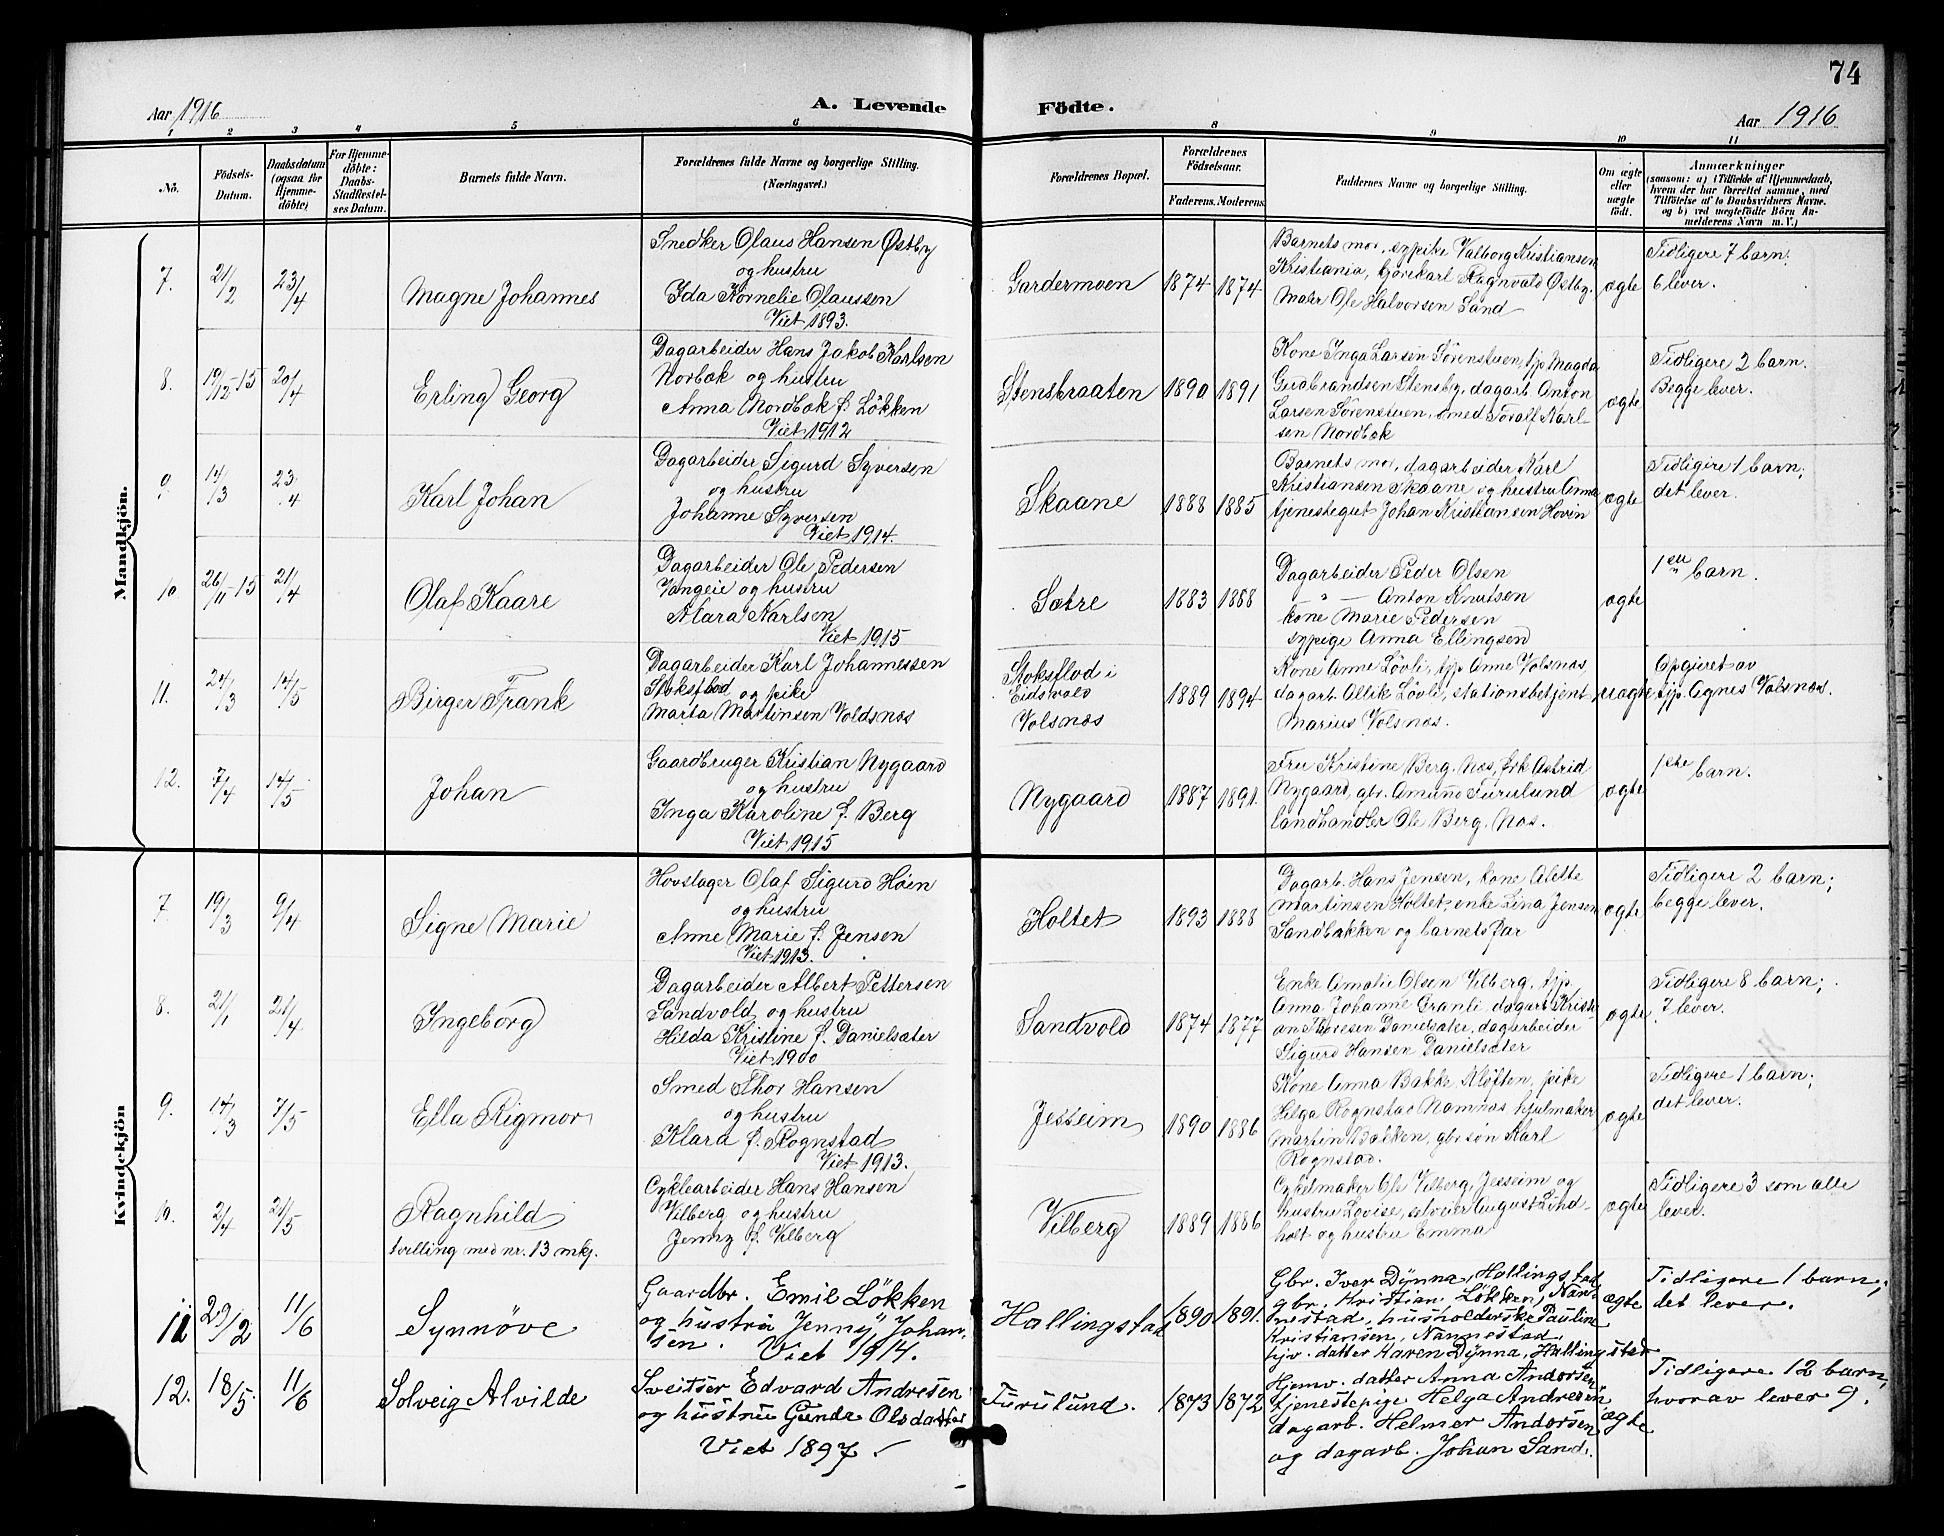 74
Aar 1916
A. Levende Födte.
Aar 1916
1 2 3 4 5 6 8 9 10 11
No.
Födsels-
Datum.
Daabsdatum
(ogsaa for
Hjemme-
döbte)
For Hjemme-
döbte:
Daabs-
Stadfæstel-
ses Datum.
Barnets fulde Navn.
Forældrenes fulde Navne og borgerlige Stilling.
(Næringsvei.)
Forældrenes Bopæl.
Forældrenes
Födselsaar.
Faderens. Moderens.
Faddernes Navne og borgerlige Stilling.
Om ægte
eller
uægte
födt.
Anmærkninger
(saasom: a) i Tilfælde af Hjemmedaab,
hvem der har forrettet samme, med
Tilföielse af to Daabsvidners Navne.
og b) ved uægtefödte Börn An-
melderens Navn m. V.)
Mandkjön.
7.
21/2
23/4
Magne Johannes
Snedker Olaus Hansen Østby
og hustru
Ida Kornelie Olaussen
Viet 1893.
Gardermoen
1874
1874
Barnets mor, sypike Valborg Kristiansen
Kristiania, kjørekarl Ragnvald Østby.
Maler Ole Halvorsen Sand
ægte
Tidligere 7 barn.
6 lever.
8.
19/12-15
20/4
Erling Georg
Dagarbeider Hans Jakob Karlsen
Norbæk og hustru
Anna Nordbæk f. Løkken
Viet 1912
Stensbraaten
1890
1891
Kone Inga Larsen Sørenstuen, tjp Magda
Gudbrandsen Stensby, dagarb Anton
Larsen Sørenstuen, smed Toralf Karl-
sen Nordbæk
ægte
Tidligere 2 barn.
Begge lever.
9.
14/3
23/4
Karl Johan
Dagarbeider Sigurd Syversen
og hustru
Johanne Syversen
Viet 1914.
Skaane
1888
1885
Barnets mor, dagarbeider Karl
Kristiansen Skaane og hustru Anna
tjenestegut Johan Kristiansen Hovin
ægte
Tidligere 1 barn;
det lever.
10
26/11-15
21/4
Olaf Kaare
Dagarbeider Ole Pedersen
Vangeie og hustru
Klara Karlsen
Viet 1915
Sætre
1883
1888
Dagarbeider Peder Olsen
— " — Anton Knutsen
kone Marie Pedersen
sypige Anna Ellingsen
ægte
1ste barn.
11.
24/3
14/5
Birger Frank
Dagarbeider Karl Johannessen
Stoksflod og pike
Marta Martinsen Voldsnæs
Stoksflod i
Eidsvold
Volsnæs
1889
1894
Kone Anne Løvli, tjp Anne Volsnæs,
dagarb. Ollik Løvli, stationsbetjent
Marius Volsnæs.
uægte
Opgivet av
tjp. Agnes Volsnæs.
12.
7/4
14/5
Johan
Gaardbruger Kristian Nygaard
og hustru
Inga Karoline f. Berg
Viet 1915
Nygaard
1887
1891.
Fru Kristine Berg. Næs, frk Astrid
Nygaard, gbr. Amund Furulund
landhandler Ole Berg, Næs.
ægte
1ste barn.
Kvindekjön
7.
19/3
9/4
Signe Marie
Hovslager Olaf Sigurd Høien
og hustru
Anne Marie f. Jensen
Viet 1913.
Holtet
1893
1888
Dagarb. Hans Jensen, kone Alette
Martinsen Holtet, enke Lina Jensen
Sandbakken og barnets far
ægte
Tidligere 2 barn;
begge lever.
8.
21/1
24/4
Ingeborg
Dagarbeider Albert Pettersen
Sandvold og hustru
Hilda Kristine f. Danielsæter
Viet 1900
Sandvold
1874
1877
Enke Amalie Olsen Vilberg, tjp
Anna Johanne Granli, dagarb Kristi-
an Thoresen Danielsæter, dagarbeider
Sigurd Hansen Danielsæter
ægte
Tidligere 8 barn;
7 lever.
9.
14/3
7/5
Ella Rigmor
Smed Thor Hansen
og hustru
Klara f. Rognstad
Viet 1913.
Jesseim
1890
1886
Kone Anna Bakke Kløften, pike
Helga Rognstad Namnæs, hjulmaker
Martin Bakken, gbr søn Karl
Rognstad.
ægte
Tidligere 1 barn;
det lever.
10.
2/4
21/5
Ragnhild
tvilling med nr. 13 mkj.
Cyklearbeider Hans Hansen
Vilberg og hustru
Jenny f. Vilberg
Vilberg
1889
1886
Cykelmaker Ole Vilberg, Jesseim og
hustru Lovise, selveier August Lind-
holt og hustru Emma
ægte
Tidligere 3 som alle
lever.
11
29/2
11/6
Synnöve
Gaardbr. Emil Lökken
og hustru Jenny Johan-
sen. Viet 1914.
Hallingstad
1890
1891.
Gbr. Iver Dynna, Hallingstad
gbr. Kristian Lökken, Nan-
nestad, husholderske Pauline
Kristiansen, Nannestad.
hjv. datter Karen Dynna, Hallingstad
ægte
Tidligere 1 barn;
det lever.
12.
18/5.
11/6
Solveig Alvilde
Sveitser Edvard Andresen
og hustru Gunda Olsdatter
Viet 1897.
Furulund.
1873
1872
Hjemv. datter Anna Andersen
tjenestepige Helga Andresen
dagarb. Helmer Andersen
og dagarb. Johan Sand.
ægte
Tidligere 12 barn,
hvorav lever 9.